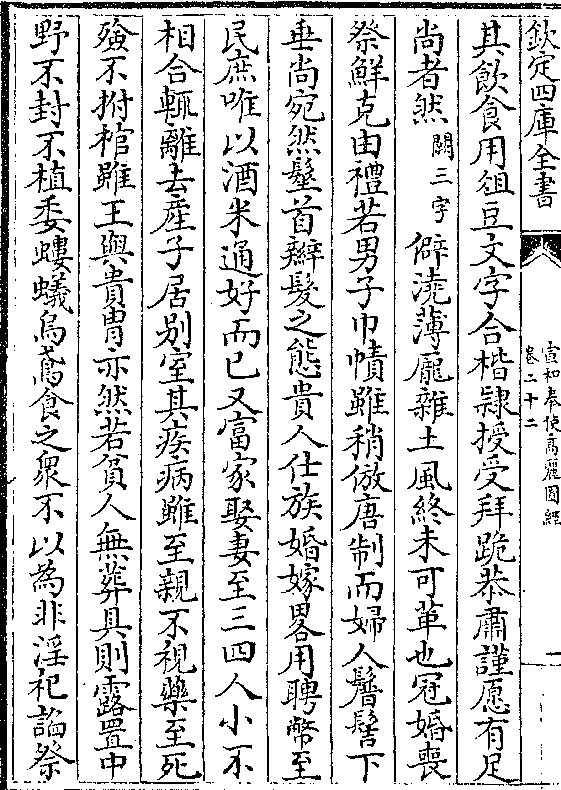 欽定四庫全書
宣和奉使高麗圖經
卷二十二
一
其飲食用俎豆文字合楷隸授受拜跪恭肅謹愿有足
尚者然闕三字僻澆薄厖雜土風終未可革也冠婚喪
祭鮮克由禮若男子巾幘雖稍倣唐制而婦人鬐髻下
垂尚宛然髽首辮髮之態貴人仕族婚嫁畧用聘幣至
民庶唯以酒米通好而已又富家娶妻至三四人小不
相合輒離去產子居別室其疾病雖至親不視藥至死
殮不拊棺雖王與貴胄亦然若貧人無葬具則露置中
野不封不植委螻蟻烏鳶食之衆不以為非淫祀諂祭